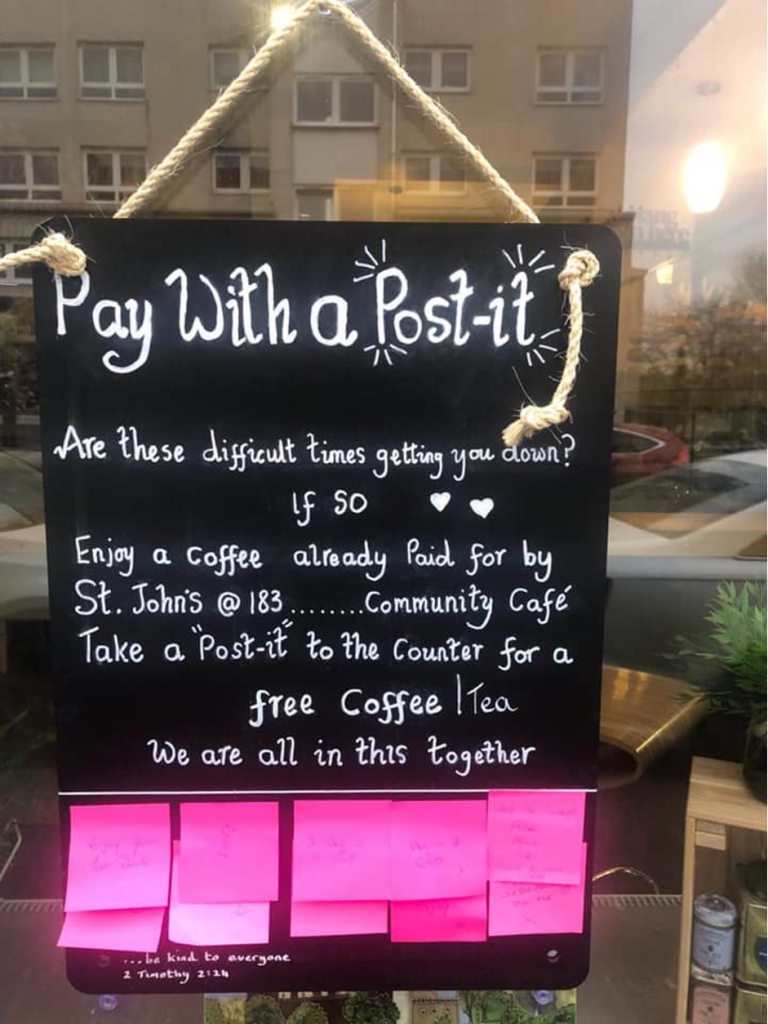 Pay With a Post-it
Are these difficult times getting you down?
If so
Enjoy a Coffee already Paid for by
St. John's @ 183........Community Café
Take a "Post-it" to the Counter for a
free Coffee / Tea
We are all in this together
...be kind to everyone
2 Timothy 2:24